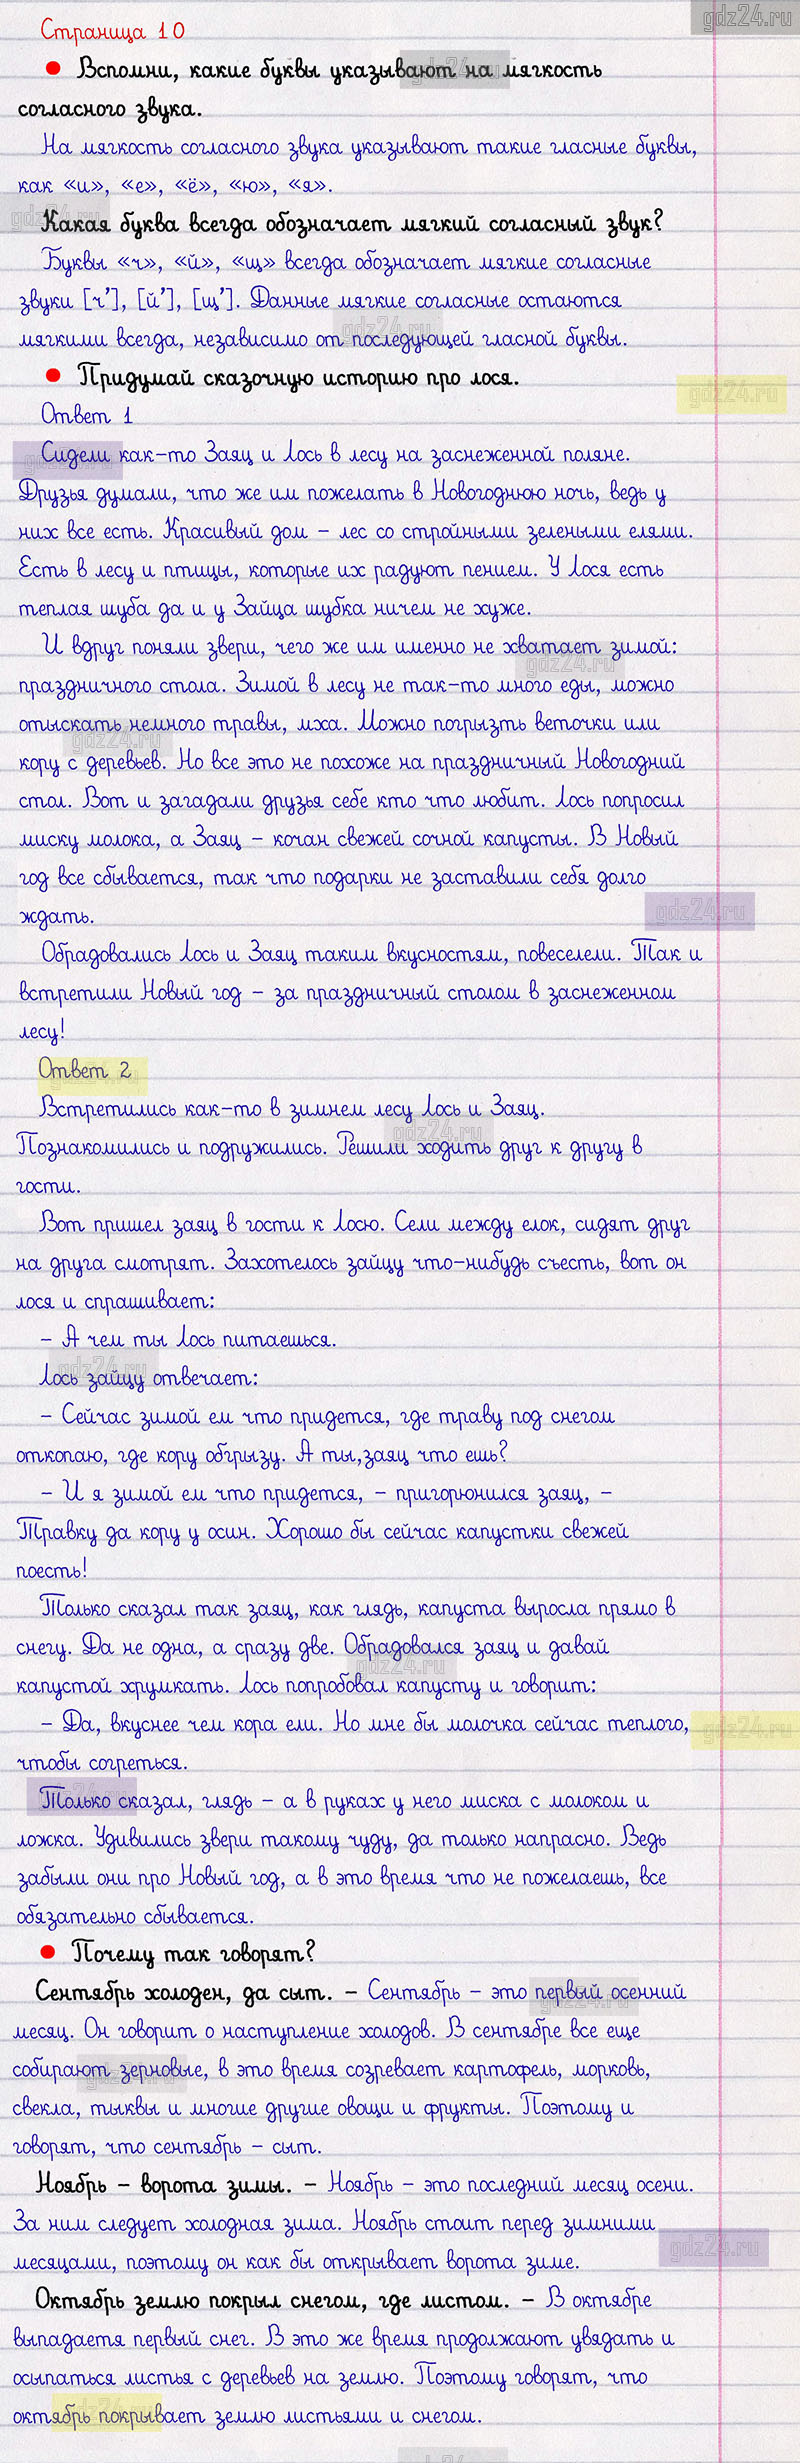 gdz24.ru
Страница 10
Вспомни, какие буквы указывают на мягкость
согласного звука.
На мягкость согласного звука указывают такие гласные буквы,
как «и», «е», «ё», «ю», «я».
Какая буква всегда обозначает мягкий согласный звук?
Буквы «ч», «й», «щ» всегда обозначает мягкие согласные
звуки [ч’], [й’], [щ’]. Данные мягкие согласные остаются
мягкими всегда, независимо от последующей гласной буквы.
Придумай сказочную историю про лося.
Ответ 1
Сидели как-то Заяц и Лось в лесу на заснеженной поляне.
Друзья думали, что же им пожелать в Новогоднюю ночь, ведь у
них все есть. Красивый дом – лес со стройными зелеными елями.
Есть в лесу и птицы, которые их радуют пением. У Лося есть
теплая шуба да и у Зайца шубка ничем не хуже.
И вдруг поняли звери, чего же им именно не хватает зимой:
праздничного стола. Зимой в лесу не так-то много еды, можно
отыскать немного травы, мха. Можно погрызть веточки или
кору с деревьев. Но все это не похоже на праздничный Новогодний
стол. Вот и загадали друзья себе кто что любит. Лось попросил
миску молока, а Заяц – кочан свежей сочной капусты. В Новый
год все сбывается, так что подарки не заставили себя долго
ждать.
Обрадовались Лось и Заяц таким вкусностям, повеселели. Так и
встретили Новый год – за праздничный столом в заснеженном
лесу!
Ответ 2
Встретились как-то в зимнем лесу Лось и Заяц.
Познакомились и подружились. Решили ходить друг к другу в
гости.
Вот пришел заяц в гости к Лосю. Сели между елок, сидят друг
на друга смотрят. Захотелось зайцу что-нибудь съесть, вот он
лося и спрашивает:
– А чем ты Лось питаешься.
Лось зайцу отвечает:
– Сейчас зимой ем что придется, где траву под снегом
откопаю, где кору обгрызу. А ты,заяц что ешь?
– И я зимой ем что придется, – пригорюнился заяц, –
Травку да кору у осин. Хорошо бы сейчас капустки свежей
поесть!
Только сказал так заяц, как глядь, капуста выросла прямо в
снегу. Да не одна, а сразу две. Обрадовался заяц и давай
капустой хрумкать. Лось попробовал капусту и говорит:
– Да, вкуснее чем кора ели. Но мне бы молочка сейчас теплого,
чтобы согреться.
Только сказал, глядь – а в руках у него миска с молоком и
ложка. Удивились звери такому чуду, да только напрасно. Ведь
забыли они про Новый год, а в это время что не пожелаешь, все
обязательно сбывается.
Почему так говорят?
Сентябрь холоден, да сыт. – Сентябрь – это первый осенний
месяц. Он говорит о наступление холодов. В сентябре все еще
собирают зерновые, в это время созревает картофель, морковь,
свекла, тыквы и многие другие овощи и фрукты. Поэтому и
говорят, что сентябрь – сыт.
Ноябрь – ворота зимы. – Ноябрь – это последний месяц осени.
За ним следует холодная зима. Ноябрь стоит перед зимними
месяцами, поэтому он как бы открывает ворота зиме.
Октябрь землю покрыл снегом, где листом. – В октябре
выпадаетя первый снег. В это же время продолжают увядать и
осыпаться листья с деревьев на землю. Поэтому говорят, что
октябрь покрывает землю листьями и снегом.